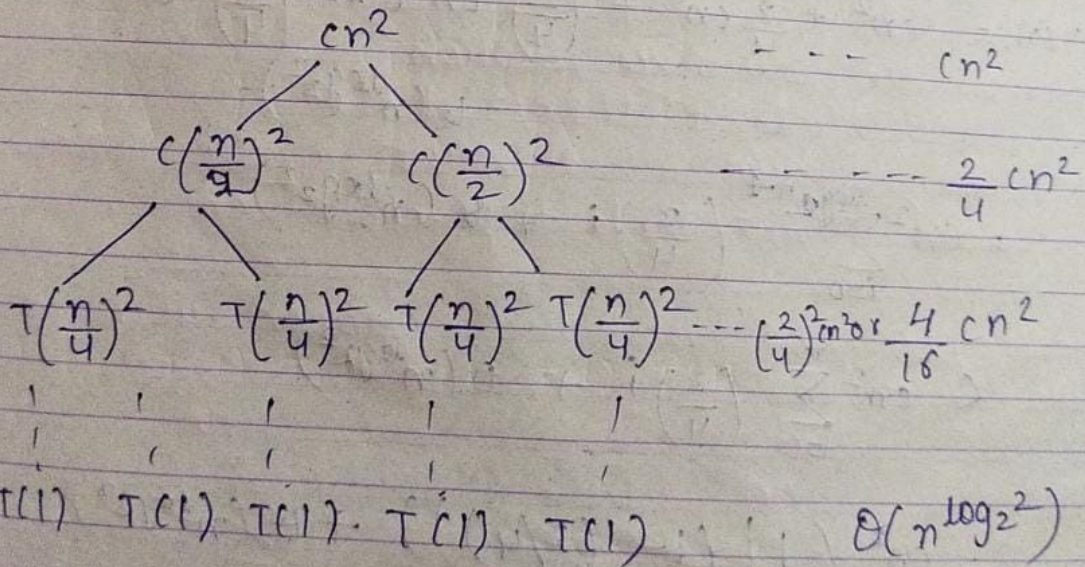 cn² - - - cn²
c(n/2)² c(n/2)² - - - - - 2/4 cn²
T(n/4)² T(n/4)² T(n/4)² T(n/4)² - - - (2/4)² cn² or 4/16 cn²
T(1) T(1) T(1) . T(1) . T(1) θ(n^log₂2)